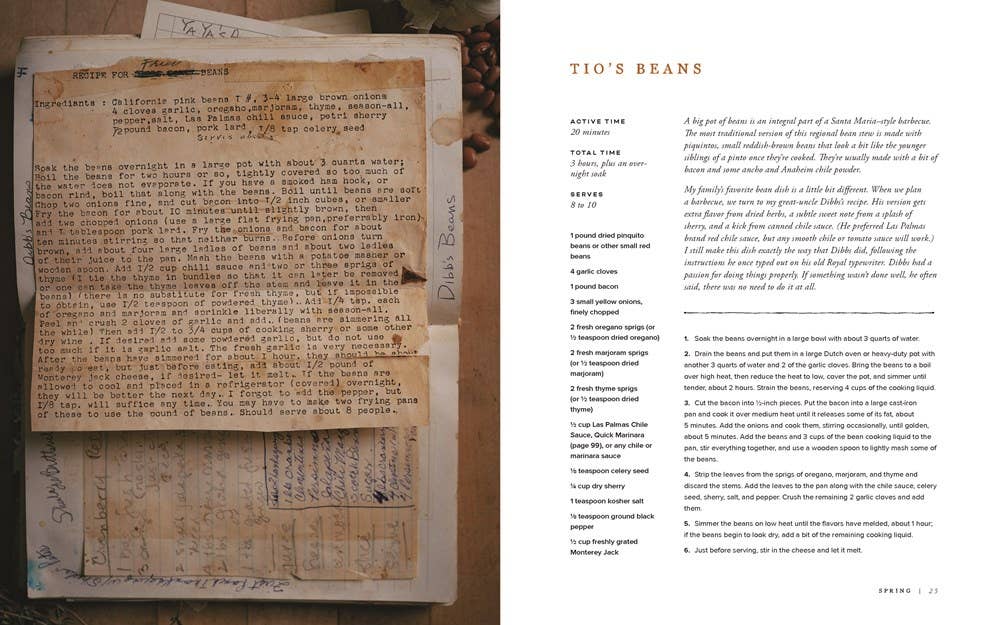 YA YA'S
Fried
RECIPE FOR BEANS
Ingrediants : California pink beans I #, 3-4 large brown onions
4 cloves garlic, oregaho,marjoram, thyme, season-all,
pepper,salt, Las Palmas chili sauce, petri sherry
1/2 pound bacon, pork lard, I/8 tap celery seed
Serves about
Soak the beans overnight in a large pot with about 3 quarts water;
Boil the beans for two hours or so, tightly covered so too much of
the water does not evaporate. If you have a smoked ham hock, or
bacon rind, boil that along with the beans. Boil until beans are soft
Chop two onions fine, and cut bacon into I/2 inch cubes, or smaller
Fry the bacon for about IO minutes until slightly brown, then
add two chopped onions (use a large flat frying pan,preferrably iron)
and I tablespoon pork lard. Fry the onions and bacon for about
ten minutes stirring so that neither burns. Before onions turn
brown, add about four large ladles of beans and about two ladles
of their juice to the pan. Mash the beans with a potatoe masher or
wooden spoon. Add I/2 cup chili sauce and two or three sprigs of
thyme (I tie the thyme in bundles so that it can later be removed
or one can take the thyme leaves off the stem and leave it in the
beans) (there is no substitute for fresh thyme, but if impossible
to obtain, use I/2 teaspoon of powdered thyme). Add I/4 tap. each
of oregano and marjoram and sprinkle liberally with season-all.
Peel and crush 2 cloves of garlic and add. (beans are simmering all
the while) Then add I/2 to 3/4 cups of cooking sherry or some other
dry wine . If desired add some powdered garlic, but do not use
too much if it is garlic salt. The fresh garlic is very necessary.
After the beans have simmered for about I hour, they should be about
ready to eat, but just before eating, add about I/2 pound of
Monterey jack cheese, if desired- let it melt. If the beans are
allowed to cool and placed in a refrigerator (covered) overnight,
they will be better the next day. I forgot to add the pepper, but
I/8 tap. will suffice any time. You may have to make two frying pans
of these to use the pound of beans. Should serve about 8 people.
Dibbs Beans
Dibb's Beans
TIO'S BEANS
ACTIVE TIME
20 minutes
TOTAL TIME
3 hours, plus an over-
night soak
SERVES
8 to 10
1 pound dried pinquito
beans or other small red
beans
4 garlic cloves
1 pound bacon
3 small yellow onions,
finely chopped
2 fresh oregano sprigs (or
½ teaspoon dried oregano)
2 fresh marjoram sprigs
(or ½ teaspoon dried
marjoram)
2 fresh thyme sprigs
(or ½ teaspoon dried
thyme)
½ cup Las Palmas Chile
Sauce, Quick Marinara
(page 99), or any chile or
marinara sauce
⅛ teaspoon celery seed
¼ cup dry sherry
1 teaspoon kosher salt
⅛ teaspoon ground black
pepper
½ cup freshly grated
Monterey Jack
A big pot of beans is an integral part of a Santa Maria–style barbecue.
The most traditional version of this regional bean stew is made with
piquintos, small reddish-brown beans that look a bit like the younger
siblings of a pinto once they're cooked. They're usually made with a bit of
bacon and some ancho and Anaheim chile powder.
My family's favorite bean dish is a little bit different. When we plan
a barbecue, we turn to my great-uncle Dibbs's recipe. His version gets
extra flavor from dried herbs, a subtle sweet note from a splash of
sherry, and a kick from canned chile sauce. (He preferred Las Palmas
brand red chile sauce, but any smooth chile or tomato sauce will work.)
I still make this dish exactly the way that Dibbs did, following the
instructions he once typed out on his old Royal typewriter. Dibbs had a
passion for doing things properly. If something wasn't done well, he often
said, there was no need to do it at all.
1. Soak the beans overnight in a large bowl with about 3 quarts of water.
2. Drain the beans and put them in a large Dutch oven or heavy-duty pot with
another 3 quarts of water and 2 of the garlic cloves. Bring the beans to a boil
over high heat, then reduce the heat to low, cover the pot, and simmer until
tender, about 2 hours. Strain the beans, reserving 4 cups of the cooking liquid.
3. Cut the bacon into ½-inch pieces. Put the bacon into a large cast-iron
pan and cook it over medium heat until it releases some of its fat, about
5 minutes. Add the onions and cook them, stirring occasionally, until golden,
about 5 minutes. Add the beans and 3 cups of the bean cooking liquid to the
pan, stir everything together, and use a wooden spoon to lightly mash some of
the beans.
4. Strip the leaves from the sprigs of oregano, marjoram, and thyme and
discard the stems. Add the leaves to the pan along with the chile sauce, celery
seed, sherry, salt, and pepper. Crush the remaining 2 garlic cloves and add
them.
5. Simmer the beans on low heat until the flavors have melded, about 1 hour;
if the beans begin to look dry, add a bit of the remaining cooking liquid.
6. Just before serving, stir in the cheese and let it melt.
SPRING | 25